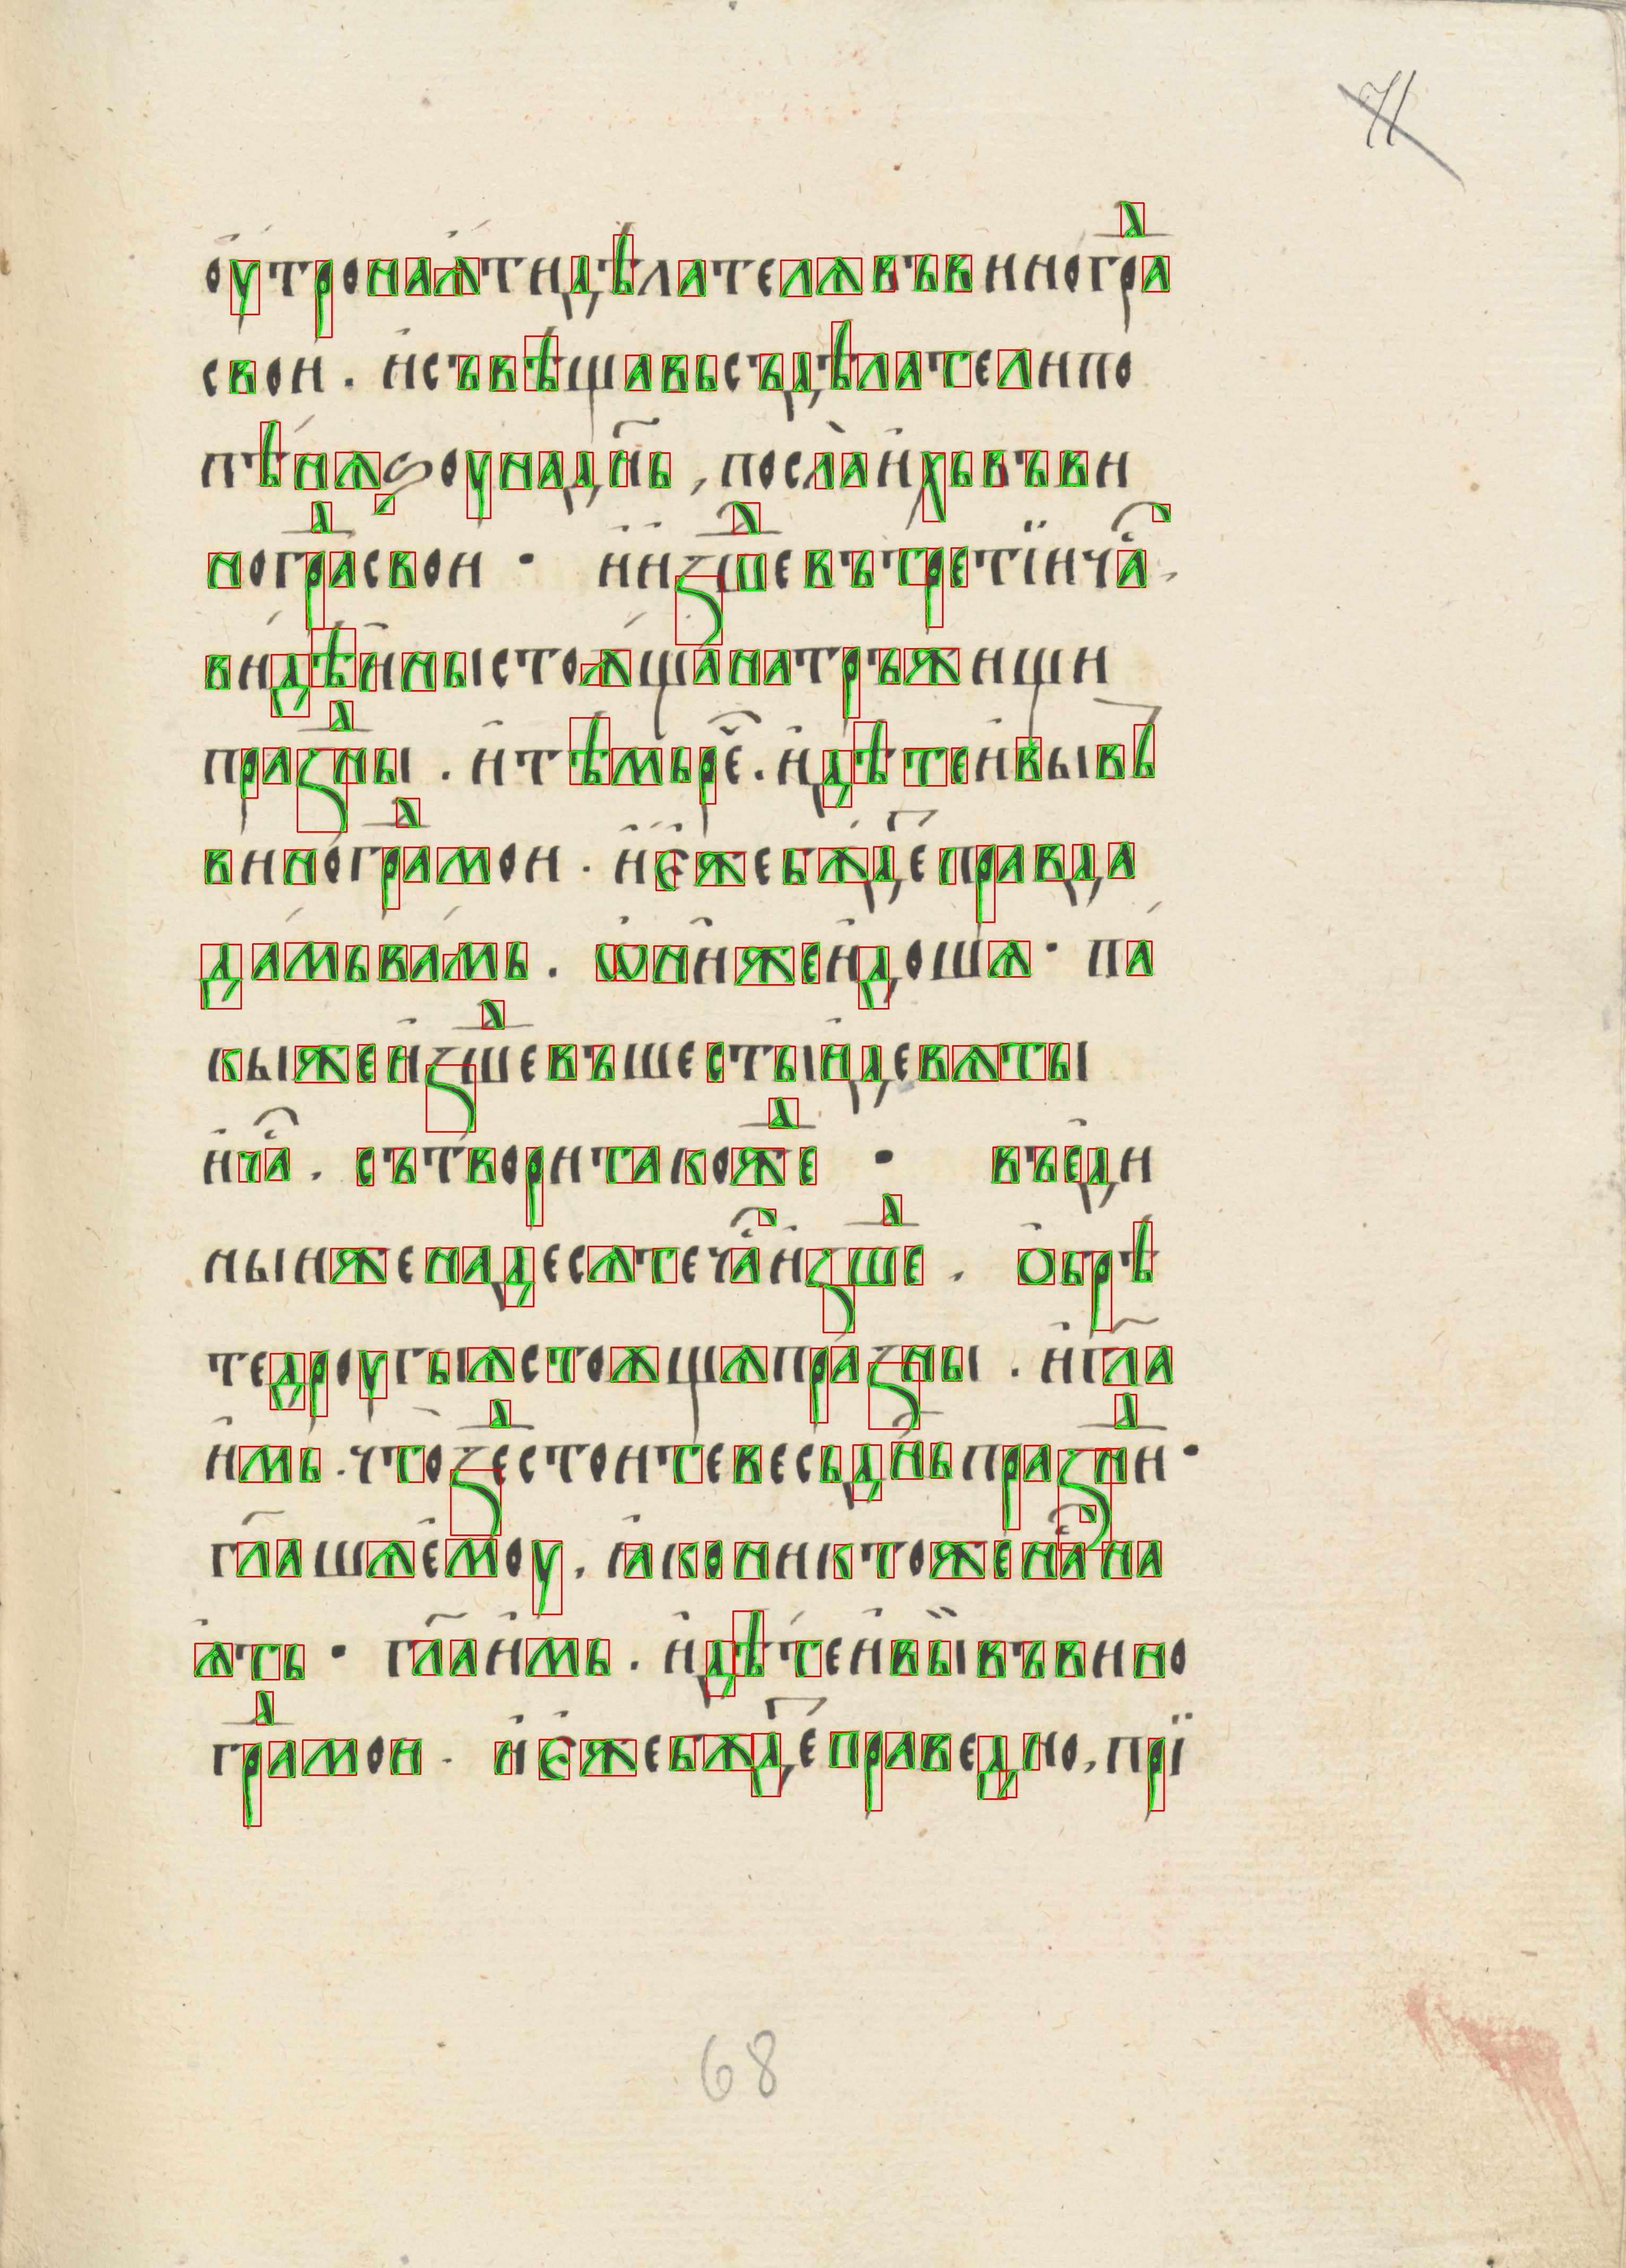 71
оу҆трона́ѧтидѣлателѧвъвиногрⷣа
свои . и҆съвѣщавьсъдѣлателипо
пѣ́нѧꙃоунадн҃ь , посла̀и҆хьвъви
ногрⷣасвои · и҆и҆зшⷣевътретїича҆ .
ви́дѣи҆ныстоѫщанатръжищи
празⷣны . и҆тѣмьре҆ . и҆дѣтеи҆вывь
виногрⷣамои . и҆є҆жебѫ́д҇еправда
да́мьва́мь . ѡ҆ни҆жеи҆дошѧ · па́
кыжеи҆зшⷣевъшестыи҆девѧты
и҆ча҆ . сътворитакожⷣе · въе҆ди
ныиженадесѧтеча҆и҆зшⷣе . о҆брѣ
тедроугыѧстоѫщѧпра́зны . и҆гл҃а
и҆мь . чтозⷣестоитевесьдн҃ьпразⷣни ·
гл҃ашѧе҆моу . ꙗ҆коникто́женана
ѧ҆ть · гл҃аи҆мь . и҆дѣ́теи҆вы̏въвино
грⷣамои . и҆є҆жебѫд҇еправедно , прїи
68